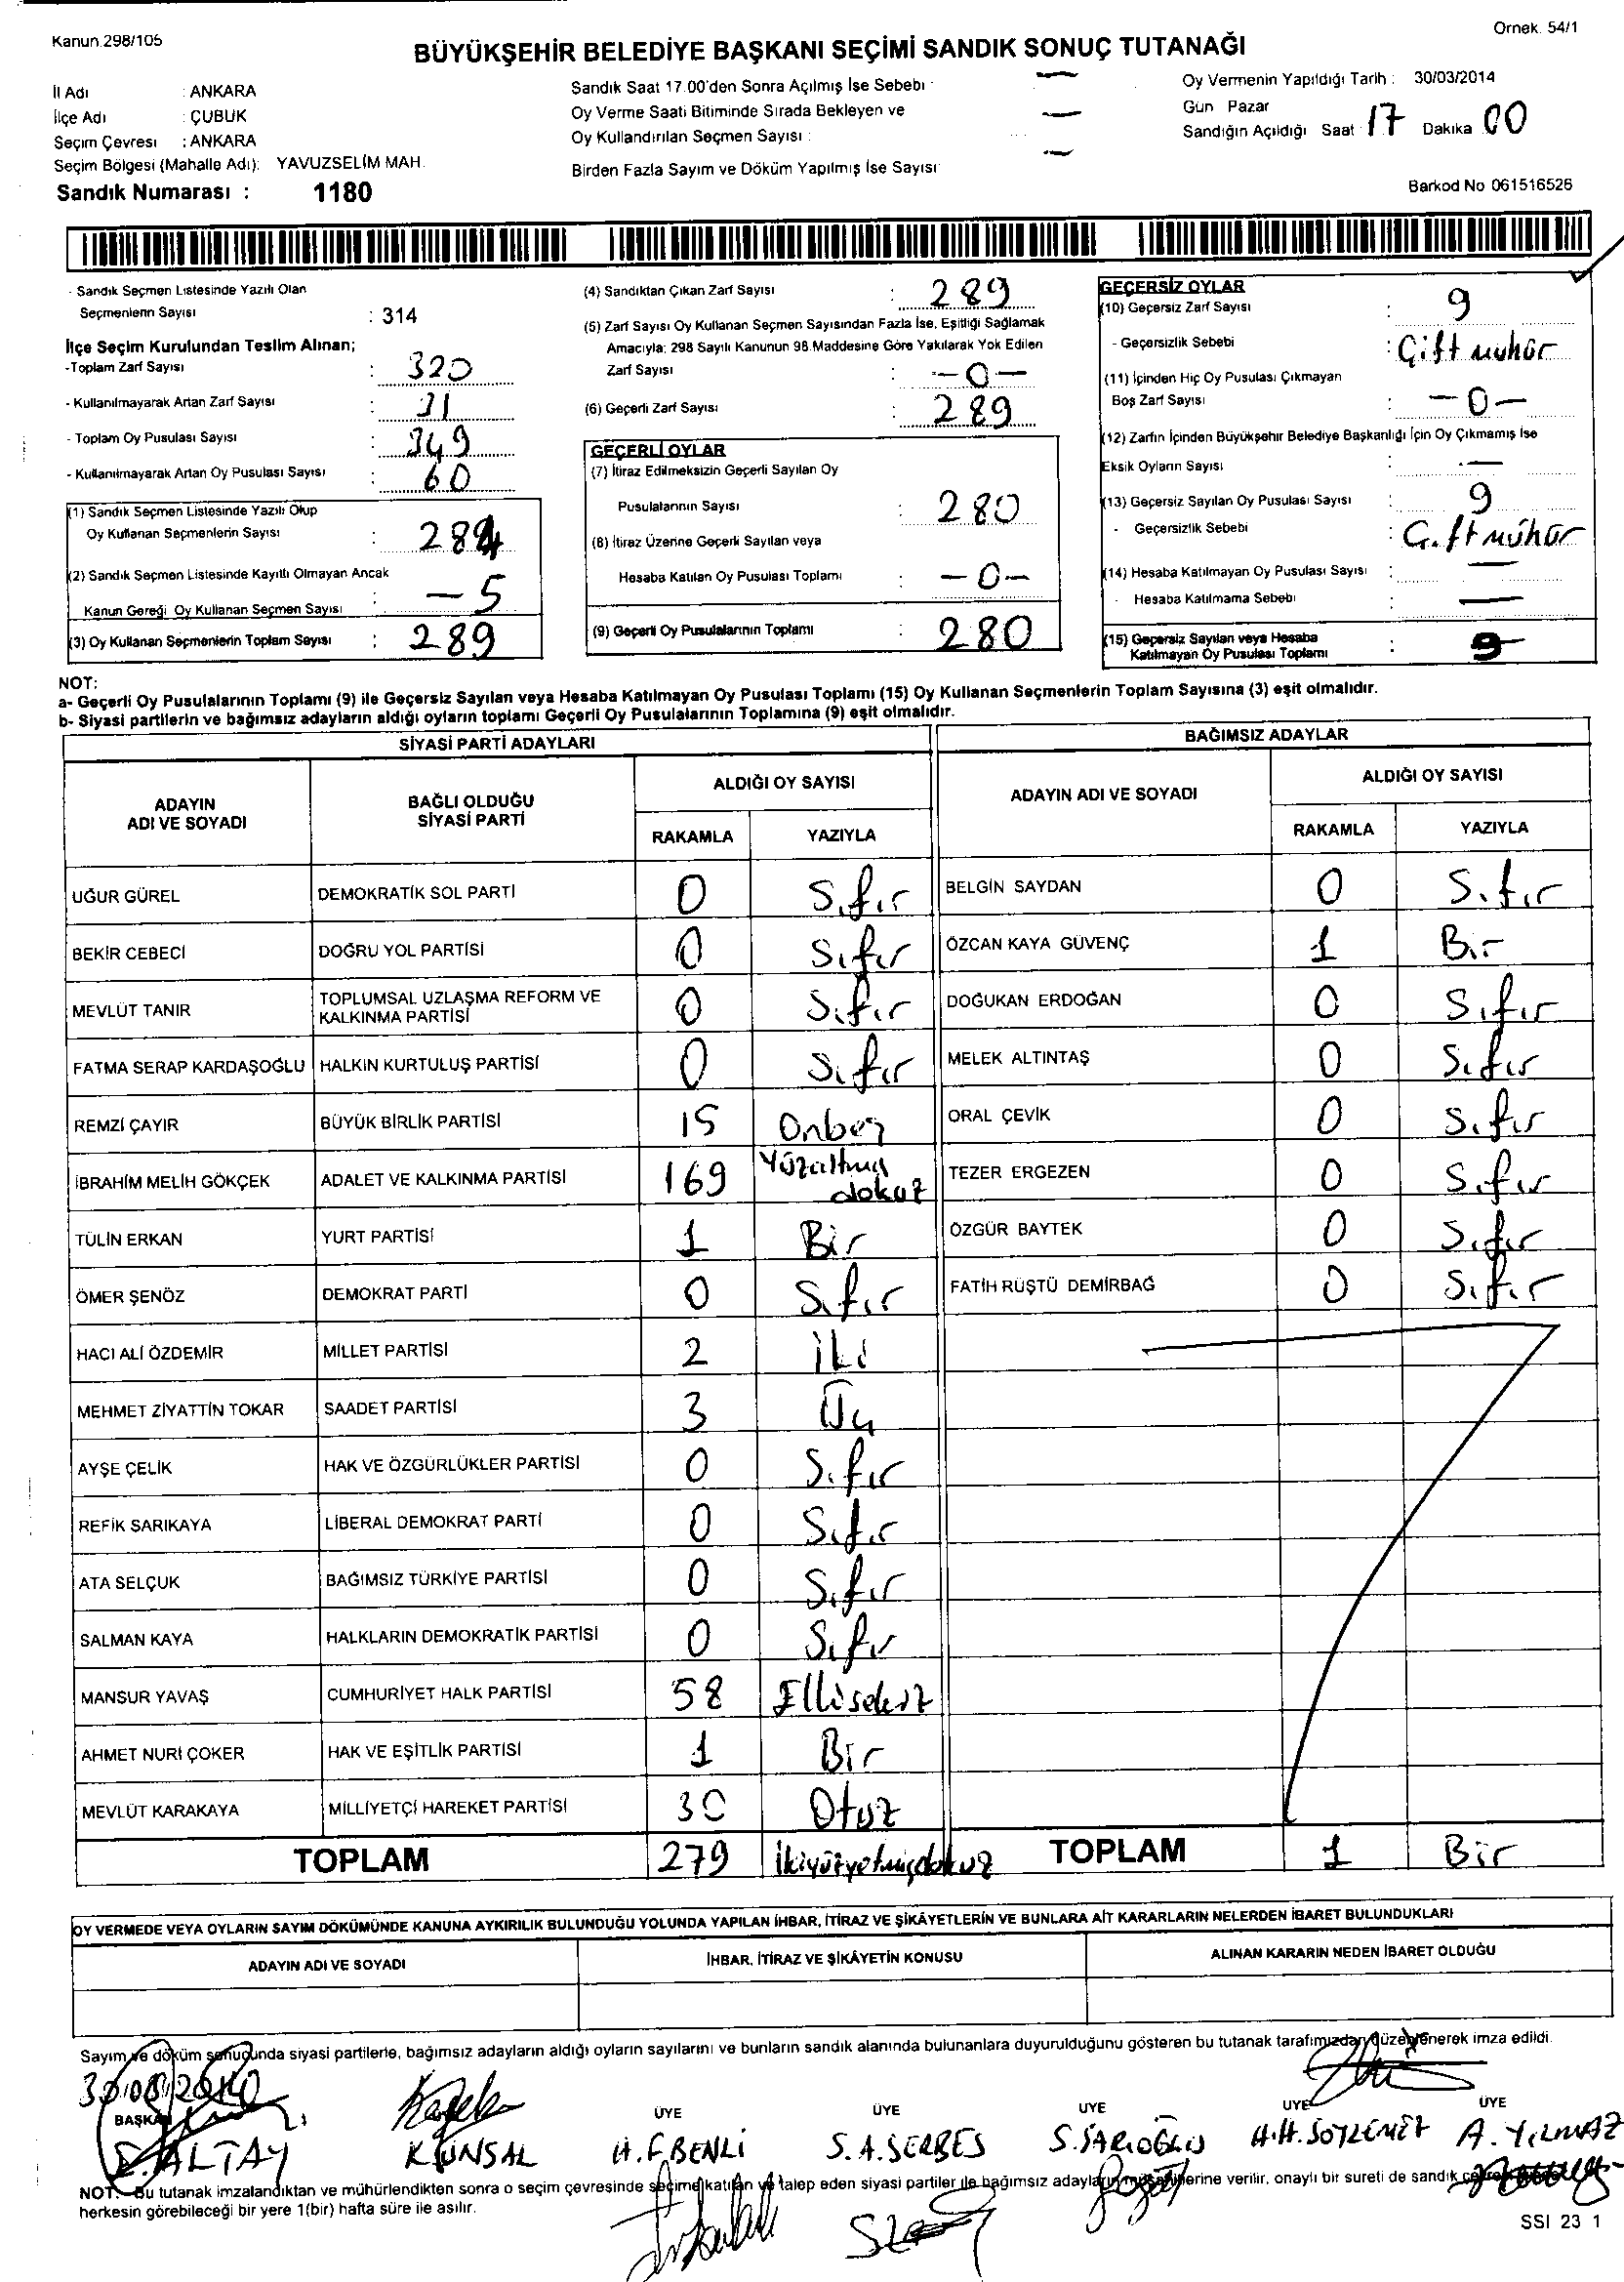 Kanun.298/105
Örnek. 54/1
BÜYÜKŞEHİR BELEDİYE BAŞKANI SEÇİMİ SANDIK SONUÇ TUTANAĞI
İl Adı : ANKARA
İlçe Adı : ÇUBUK
Seçim Çevresi : ANKARA
Seçim Bölgesi (Mahalle Adı): YAVUZSELİM MAH.
Sandık Numarası : 1180
Sandık Saat 17.00'den Sonra Açılmış İse Sebebi : —
Oy Verme Saati Bitiminde Sırada Bekleyen ve
Oy Kullandırılan Seçmen Sayısı : —
Birden Fazla Sayım ve Döküm Yapılmış İse Sayısı —
Oy Vermenin Yapıldığı Tarih : 30/03/2014
Gün Pazar
Sandığın Açıldığı Saat 17 Dakika 00
Barkod No 061516526
- Sandık Seçmen Listesinde Yazılı Olan
Seçmenlerin Sayısı : 314
İlçe Seçim Kurulundan Teslim Alınan;
-Toplam Zarf Sayısı : 320
- Kullanılmayarak Artan Zarf Sayısı : 31
- Toplam Oy Pusulası Sayısı : 349
- Kullanılmayarak Artan Oy Pusulası Sayısı : 60
(1) Sandık Seçmen Listesinde Yazılı Olup
Oy Kullanan Seçmenlerin Sayısı : 284
(2) Sandık Seçmen Listesinde Kayıtlı Olmayan Ancak
Kanun Gereği Oy Kullanan Seçmen Sayısı : — 5
(3) Oy Kullanan Seçmenlerin Toplam Sayısı : 289
(4) Sandıktan Çıkan Zarf Sayısı : 289
(5) Zarf Sayısı Oy Kullanan Seçmen Sayısından Fazla İse, Eşitliği Sağlamak
Amacıyla; 298 Sayılı Kanunun 98.Maddesine Göre Yakılarak Yok Edilen
Zarf Sayısı : —0—
(6) Geçerli Zarf Sayısı : 289
GEÇERLİ OYLAR
(7) İtiraz Edilmeksizin Geçerli Sayılan Oy
Pusulalarının Sayısı : 280
(8) İtiraz Üzerine Geçerli Sayılan veya
Hesaba Katılan Oy Pusulası Toplamı : —0—
(9) Geçerli Oy Pusulalarının Toplamı : 280
GEÇERSİZ OYLAR
(10) Geçersiz Zarf Sayısı : 9
- Geçersizlik Sebebi : Çift mühür
(11) İçinden Hiç Oy Pusulası Çıkmayan
Boş Zarf Sayısı : —0—
(12) Zarfın İçinden Büyükşehir Belediye Başkanlığı İçin Oy Çıkmamış İse
Eksik Oyların Sayısı : —
(13) Geçersiz Sayılan Oy Pusulası Sayısı : 9
- Geçersizlik Sebebi : Çift mühür
(14) Hesaba Katılmayan Oy Pusulası Sayısı : —
- Hesaba Katılmama Sebebi : —
(15) Geçersiz Sayılan veya Hesaba
Katılmayan Oy Pusulası Toplamı : 9
NOT:
a- Geçerli Oy Pusulalarının Toplamı (9) ile Geçersiz Sayılan veya Hesaba Katılmayan Oy Pusulası Toplamı (15) Oy Kullanan Seçmenlerin Toplam Sayısına (3) eşit olmalıdır.
b- Siyasi partilerin ve bağımsız adayların aldığı oyların toplamı Geçerli Oy Pusulalarının Toplamına (9) eşit olmalıdır.
SİYASİ PARTİ ADAYLARI
ADAYIN ADI VE SOYADI BAĞLI OLDUĞU SİYASİ PARTİ ALDIĞI OY SAYISI
RAKAMLA YAZIYLA
UĞUR GÜREL DEMOKRATİK SOL PARTİ 0 Sıfır
BEKİR CEBECİ DOĞRU YOL PARTİSİ 0 Sıfır
MEVLÜT TANIR TOPLUMSAL UZLAŞMA REFORM VE KALKINMA PARTİSİ 0 Sıfır
FATMA SERAP KARDAŞOĞLU HALKIN KURTULUŞ PARTİSİ 0 Sıfır
REMZİ ÇAYIR BÜYÜK BİRLİK PARTİSİ 15 Onbeş
İBRAHİM MELİH GÖKÇEK ADALET VE KALKINMA PARTİSİ 169 Yüzaltmış dokuz
TÜLİN ERKAN YURT PARTİSİ 1 Bir
ÖMER ŞENÖZ DEMOKRAT PARTİ 0 Sıfır
HACI ALİ ÖZDEMİR MİLLET PARTİSİ 2 İki
MEHMET ZİYATTİN TOKAR SAADET PARTİSİ 3 Üç
AYŞE ÇELİK HAK VE ÖZGÜRLÜKLER PARTİSİ 0 Sıfır
REFİK SARIKAYA LİBERAL DEMOKRAT PARTİ 0 Sıfır
ATA SELÇUK BAĞIMSIZ TÜRKİYE PARTİSİ 0 Sıfır
SALMAN KAYA HALKLARIN DEMOKRATİK PARTİSİ 0 Sıfır
MANSUR YAVAŞ CUMHURİYET HALK PARTİSİ 58 Ellisekiz
AHMET NURİ ÇOKER HAK VE EŞİTLİK PARTİSİ 1 Bir
MEVLÜT KARAKAYA MİLLİYETÇİ HAREKET PARTİSİ 30 Otuz
TOPLAM 279 İkiyüzyetmişdokuz
BAĞIMSIZ ADAYLAR
ADAYIN ADI VE SOYADI ALDIĞI OY SAYISI
RAKAMLA YAZIYLA
BELGİN SAYDAN 0 Sıfır
ÖZCAN KAYA GÜVENÇ 1 Bir
DOĞUKAN ERDOĞAN 0 Sıfır
MELEK ALTINTAŞ 0 Sıfır
ORAL ÇEVİK 0 Sıfır
TEZER ERGEZEN 0 Sıfır
ÖZGÜR BAYTEK 0 Sıfır
FATİH RÜŞTÜ DEMİRBAĞ 0 Sıfır
TOPLAM 1 Bir
OY VERMEDE VEYA OYLARIN SAYIM DÖKÜMÜNDE KANUNA AYKIRILIK BULUNDUĞU YOLUNDA YAPILAN İHBAR, İTİRAZ VE ŞİKÂYETLERİN VE BUNLARA AİT KARARLARIN NELERDEN İBARET BULUNDUKLARI
ADAYIN ADI VE SOYADI İHBAR, İTİRAZ VE ŞİKÂYETİN KONUSU ALINAN KARARIN NEDEN İBARET OLDUĞU
Sayım ve döküm sonucunda siyasi partilerle, bağımsız adayların aldığı oyların sayılarını ve bunların sandık alanında bulunanlara duyurulduğunu gösteren bu tutanak tarafımızdan düzenlenerek imza edildi.
BAŞKAN ÜYE ÜYE ÜYE ÜYE ÜYE
ALTAY K. ÜNSAL H.F.BENLİ S.A.SERBES S.SARIOĞLU H.H.SÖYLEMEZ A.YILMAZ
NOT: Bu tutanak imzalandıktan ve mühürlendikten sonra o seçim çevresinde seçime katılan ve talep eden siyasi partiler ile bağımsız adayların müşahitlerine verilir, onaylı bir sureti de sandık
herkesin görebileceği bir yere 1(bir) hafta süre ile asılır.
SSI 23 1